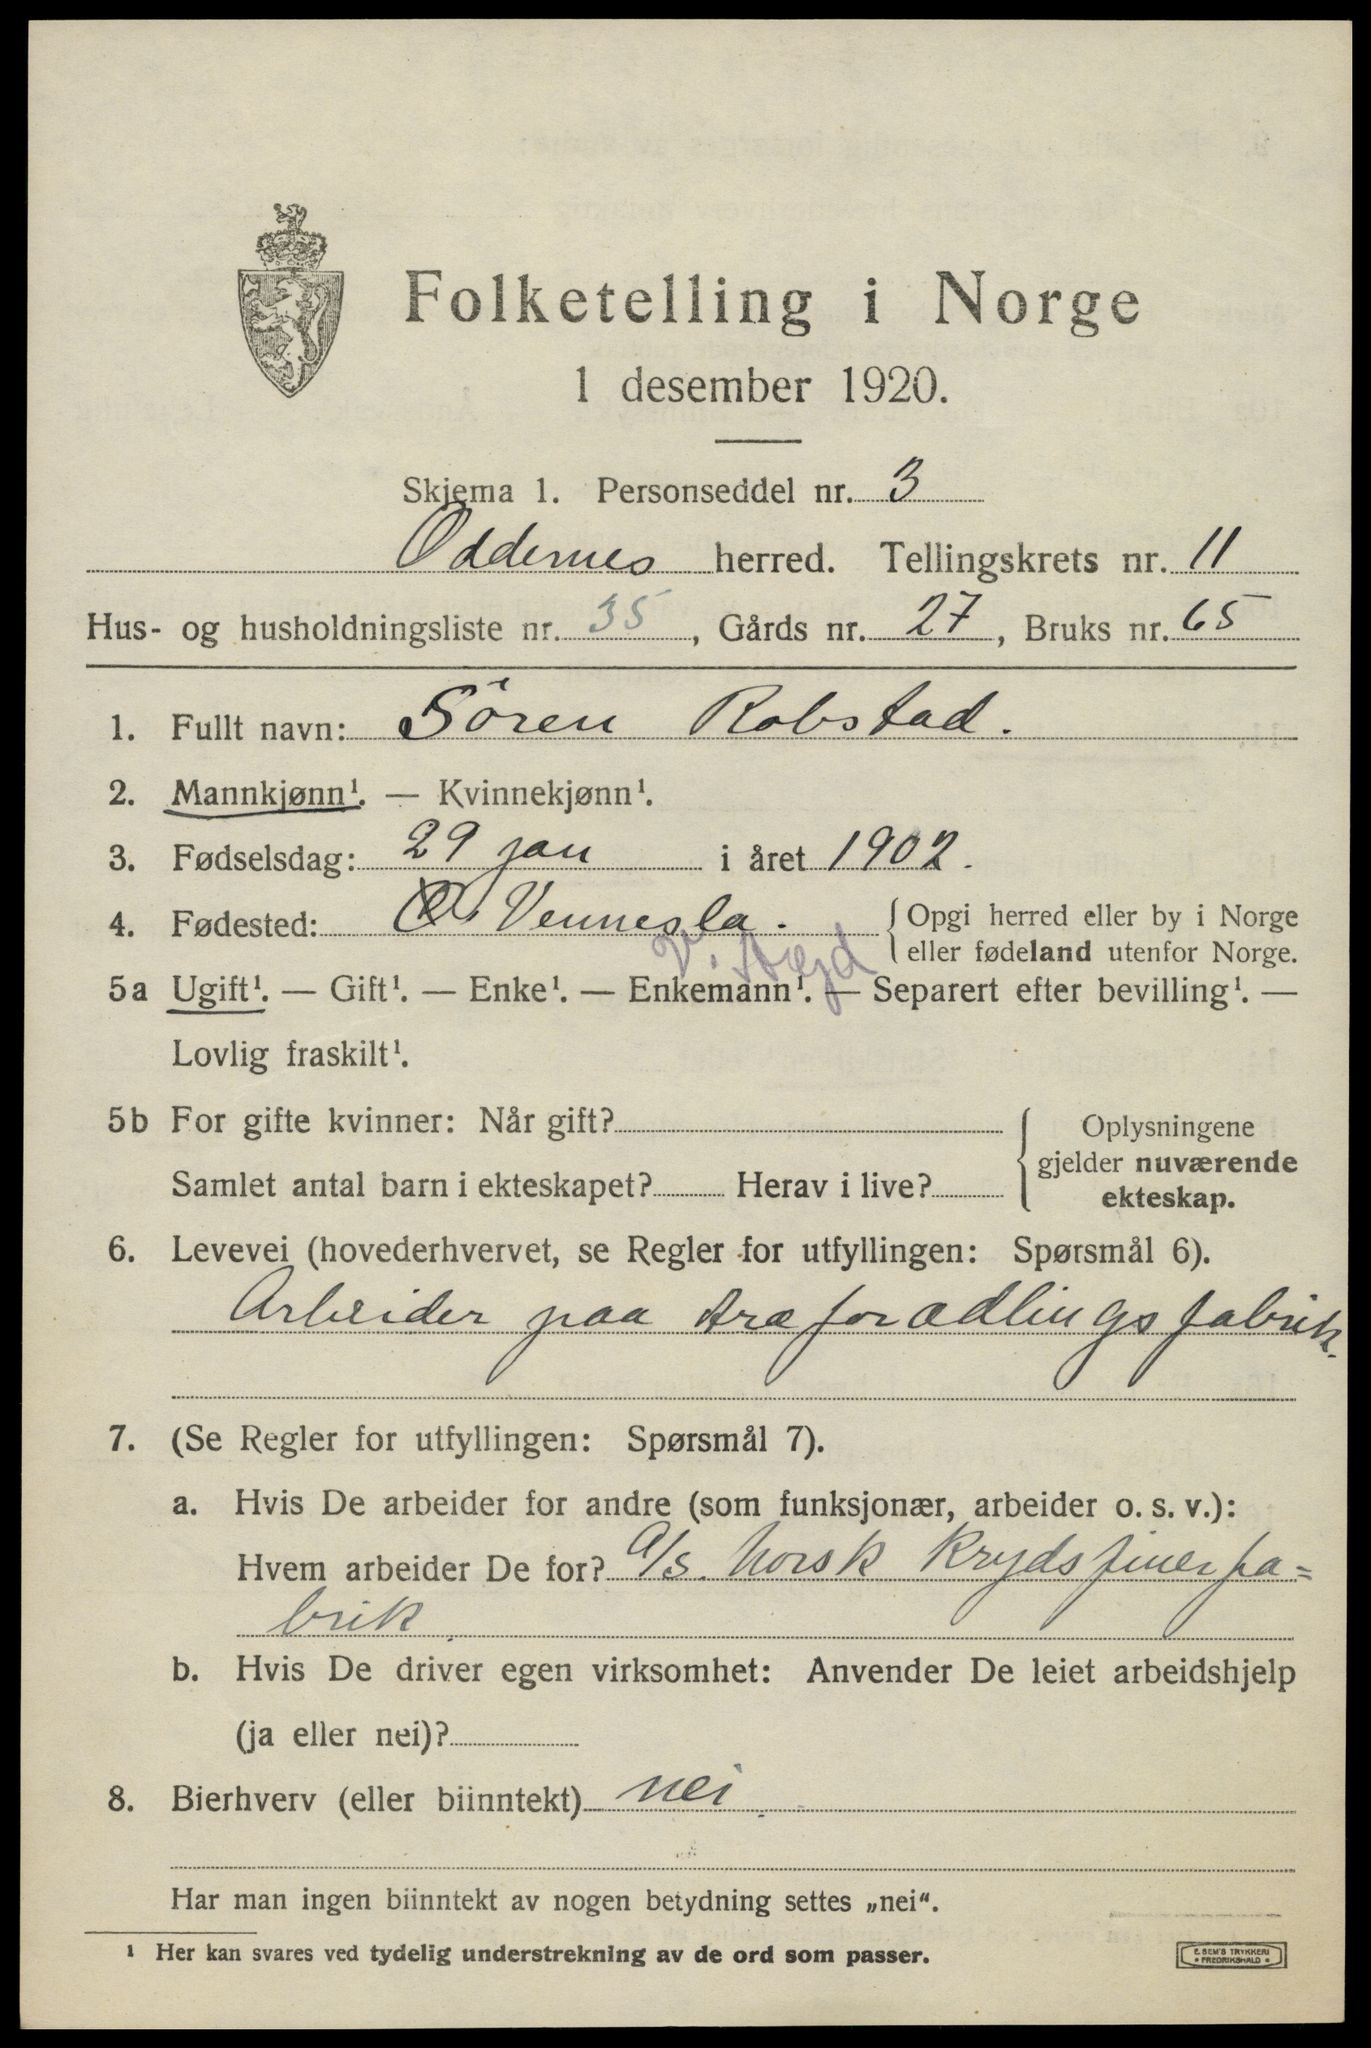 Folketelling i Norge
1 desember 1920.
Skjema 1. Personseddel nr. 3
Oddernes herred. Tellingskrets nr. 11
Hus- og husholdningsliste nr. 35, Gårds nr. 27, Bruks nr. 65
1. Fullt navn: Sören Robstad.
2. Mannkjønn¹. — Kvinnekjønn¹.
3. Fødselsdag: 29 jan i året 1902.
4. Fødested: Vennesla. Opgi herred eller by i Norge
eller fødeland utenfor Norge.
5a Ugift¹. — Gift¹. — Enke¹. — Enkemann¹. — Separert efter bevilling¹. —
Lovlig fraskilt¹.
5b For gifte kvinner: Når gift? Oplysningene
gjelder nuværende
Samlet antal barn i ekteskapet? Herav i live? ekteskap.
6. Levevei (hovederhvervet, se Regler for utfyllingen: Spørsmål 6).
Arbeider paa træforædlingsfabrik.
7. (Se Regler for utfyllingen: Spørsmål 7).
a. Hvis De arbeider for andre (som funksjonær, arbeider o. s. v.):
Hvem arbeider De for? A/S. Norsk Krydsfinerfa=
brik
b. Hvis De driver egen virksomhet: Anvender De leiet arbeidshjelp
(ja eller nei)?
8. Bierhverv (eller biinntekt) nei
Har man ingen biinntekt av nogen betydning settes „nei“.
¹ Her kan svares ved tydelig understrekning av de ord som passer.
E. SEM'S TRYKKERI
* FREDRIKSHALD *